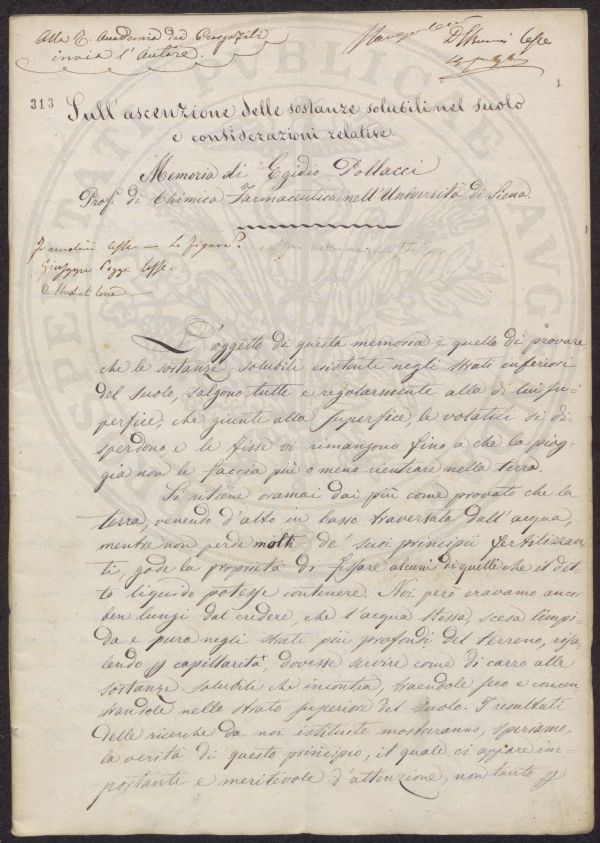 Alla R. Accademia dei Georgofili
invia l'autore.
1
313
Sull'ascenzione delle sostanze solubili nel suolo
e considerazioni relative.
Memoria di Egidio Pollacci
Prof. di Chimica Farmaceutica nell'Università di Siena.
lesse le figure?
Giuseppe lesse.
L'oggetto di questa memoria è quello di provare
che le sostanze, solubili esistente negli strati inferiori
del suolo, salgono tutte e regolarmente alla di lui su-
perfice; che giunte alla superfice, le volatili si di-
sperdono, e le fisse vi rimangono fino a che la piog-
gia non le faccia più o meno rientrare nella terra.
Si ritiene oramai dai più come provato che la
terra, venendo d'alto in basso traversata dall'acqua,
mentre non perde molti de' suoi principii fertilizzan-
ti, gode la proprietà di fissare alcuni di quelli che il det-
to liquido potesse contenere. Noi però eravamo ancor
ben lungi dal credere, che l'acqua stessa, scesa limpi-
da e pura negli strati più profondi del terreno, risa-
lendo p capillarità, dovesse servire come di carro alle
sostanze solubili che incontra, traendole seco e concen-
trandole nello strato superiore del suolo. I resultati
delle ricerche da noi istituite mostreranno, speriamo,
la verità di questo principio, il quale ci appare im-
postante e meritevole d'attenzione, non tanto p